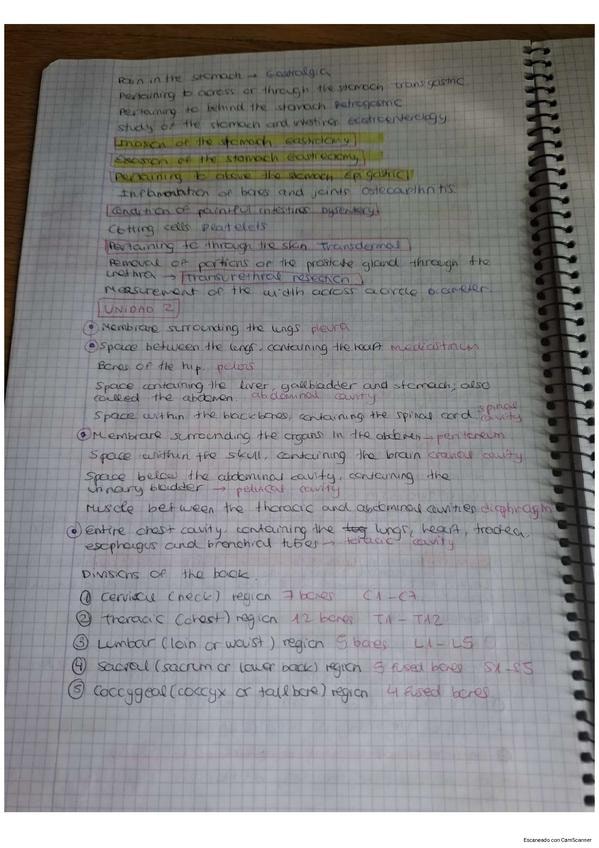 Pain in the stomach → Gastralgia
Pertaining to across or through the stomach transgastric
Pertaining to behind the stomach Retrogastric
Study of the stomach and intestines Gastroenterology
Incision of the stomach Gastrotomy
Excision of the stomach Gastrectomy
Pertaining to above the stomach Epigastric
Inflammation of bones and joints osteoarthritis
Condition of painful intestins Dysentery
Clotting cells Platelets
Pertaining to through the skin Transdermal
Removal of portions of the prostate gland through the
urethra → Transurethral resection
Measurement of the width across a circle Diameter.
UNIDAD 2
Membrane surrounding the lungs pleura
Space between the lungs, containing the heart mediastinum
Bones of the hip. pelvis
Space containing the liver, gallbladder and stomach; also
called the abdomen. abdominal cavity
Space within the backbones, containing the spinal cord spinal
cavity
Membrane surrounding the organs in the abdomen → peritoneum
Space within the skull, containing the brain cranial cavity
Space below the abdominal cavity, containing the
urinary bladder → pelvical cavity
Muscle between the thoracic and abdominal cavities diaphragm
Entire chest cavity, containing the lungs, heart, trachea,
esophagus and bronchial tubes → toracic cavity
Divisions of the back.
① Cervical (neck) region 7 bones C1-C7
② Thoracic (chest) region 12 bones T1-T12
③ Lumbar (loin or waist) region 5 bones L1-L5
④ Sacral (sacrum or lower back) region 5 fused bones S1-S5
⑤ Coccygeal (coccyx or tailbone) region 4 fused bones
Escaneado con CamScanner